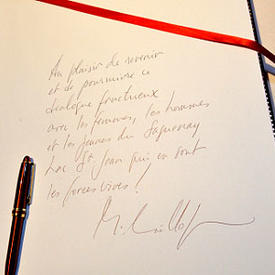 Au plaisir de revenir
et de poursuivre ce
dialogue fructueux
avec les femmes, les hommes
et les jeunes du Saguenay
Lac St Jean qui en sont
les forces vives !